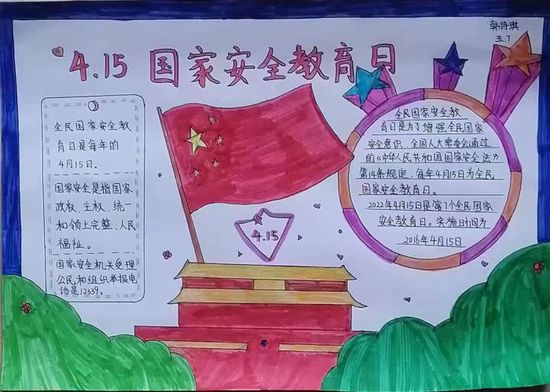 韩诗琪
五.7
4.15 国家安全教育日
全民国家安全教
育日是每年的
4月15日。
国家安全是指国家
政权、主权、统一
和领土完整、人民
福祉。
国家安全机关受理
公民和组织举报电
话是12339。
4.15
全民国家安全教
育日是为了增强全民国家
安全意识,全国人大常委会通过
的《中华人民共和国国家安全法》
第14条规定,每年4月15日为全民
国家安全教育日。
2022年4月15日是第7个全民国家
安全教育日。实施时间为
2016年4月15日